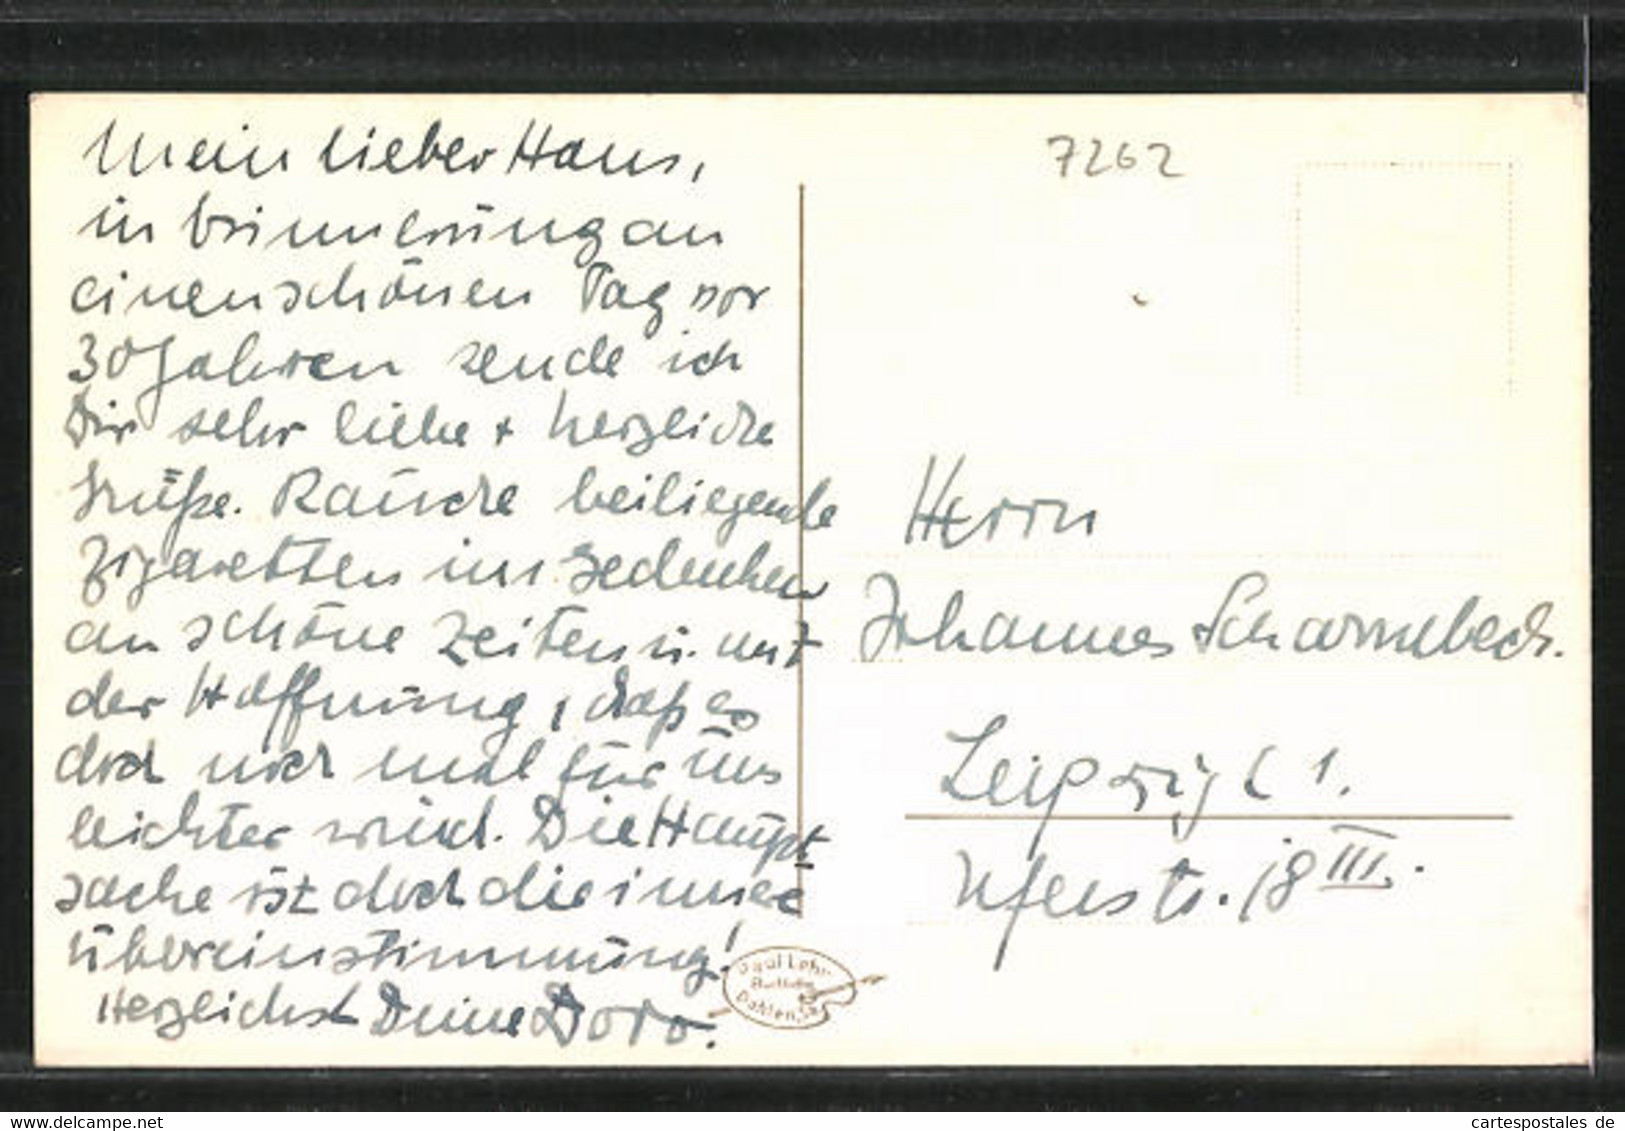 Mein lieber Hans,
in Erinnerung an
einen schönen Tag vor
30 Jahren sende ich
Dir sehr liebe + herzliche
Grüße. Rauche beiliegende
Zigaretten im Gedenken
an schöne Zeiten u. mit
der Hoffnung, daß es
doch noch mal für uns
leichter wird. Die Haupt
sache ist doch die innere
Übereinstimmung!
Herzlichst Deine Doro.
7262
Herrn
Johannes Scharmbeck.
Leipzig C 1.
Uferstr. 18 III.
Paul
Dahlen,
cartespostales de
www.delcampe.net